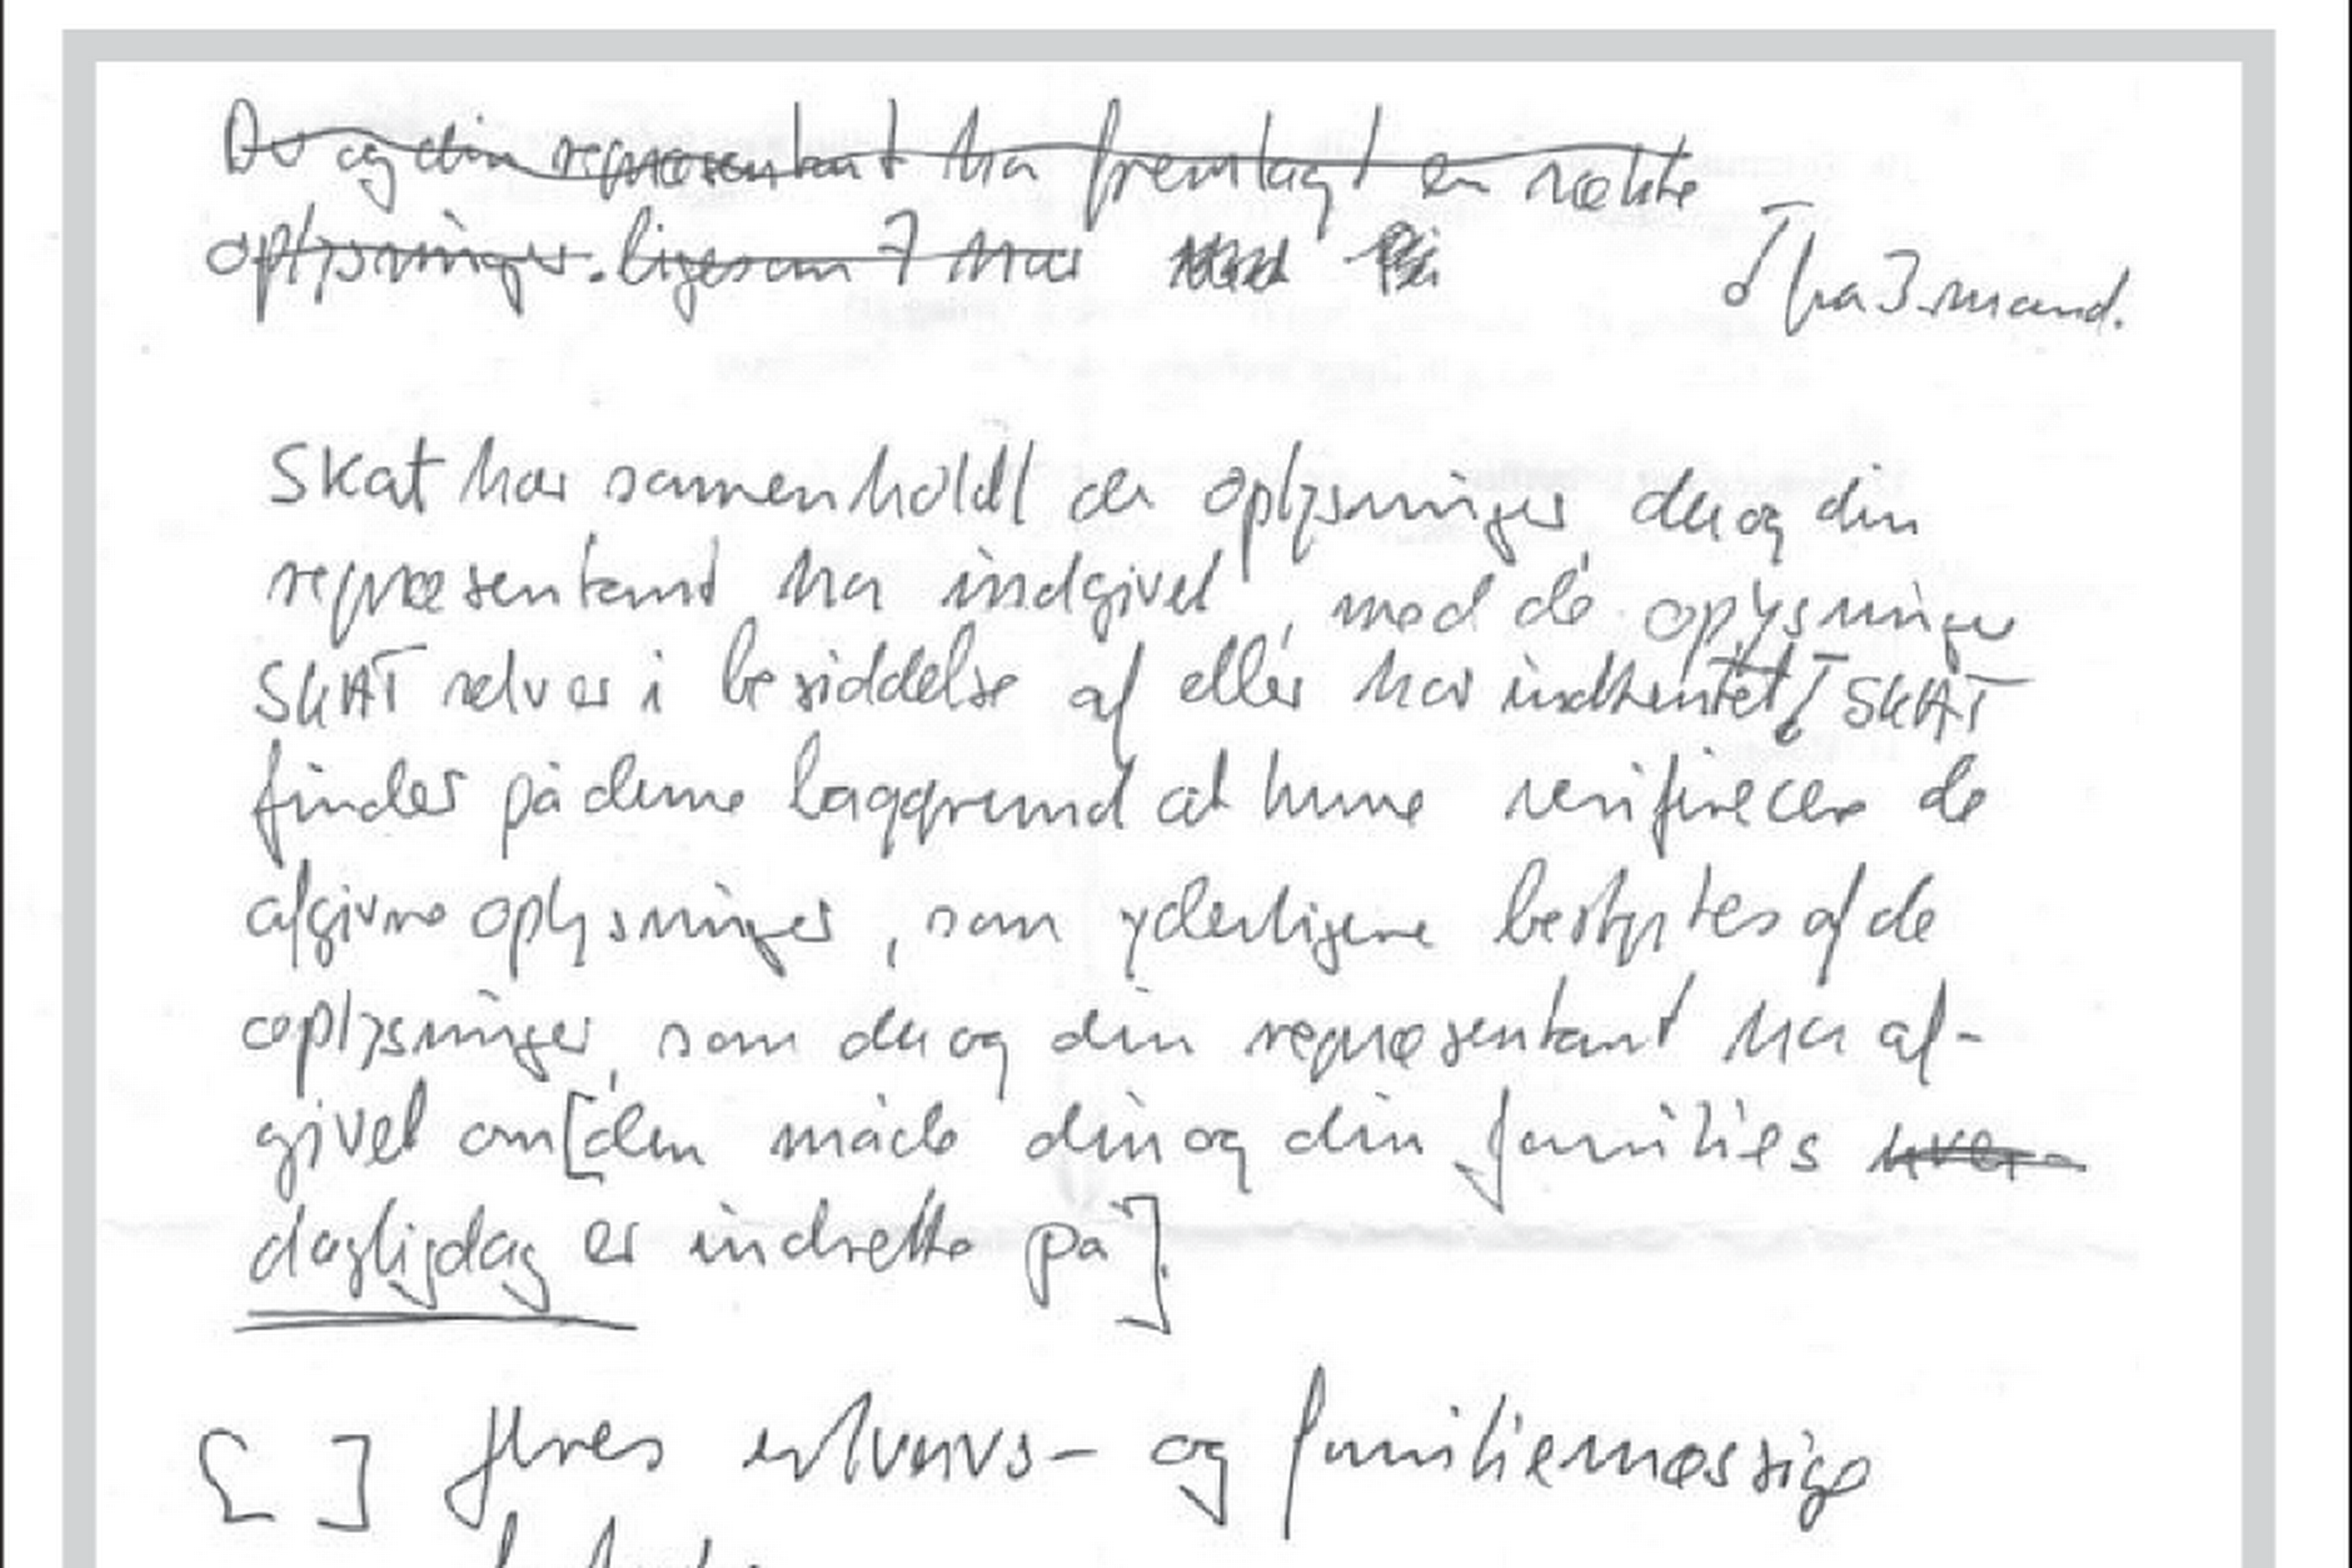 Du og din repræsentant har fremlagt en række
oplysninger. ligesom I har
fra 3. mand.
Skat har sammenholdt de oplysninger du og din
repræsentant har indgivet, med de oplysninger
SKAT selv er i besiddelse af eller har indhentet. SKAT
finder på denne baggrund at kunne verificere de
afgivne oplysninger, som yderligere bestyrkes af de
oplysninger, som du og din repræsentant har af-
givet om [den måde din og din families
dagligdag er indrettet på].
[ ] Jeres erhvervs- og familiemæssige